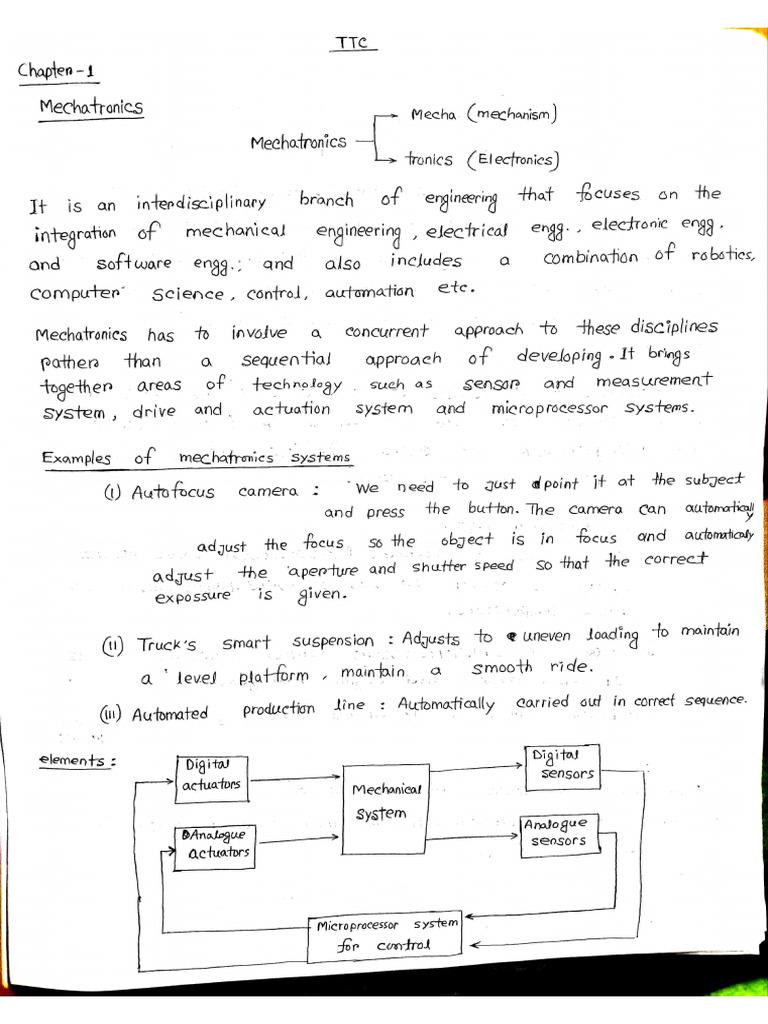 TTC
Chapter-1
Mechatronics
Mecha (mechanism)
Mechatronics
tronics (Electronics)
It is an interdisciplinary branch of engineering that focuses on the
integration of mechanical engineering, electrical engg., electronic engg.
and software engg.; and also includes a combination of robotics,
computer science, control, automation etc.
Mechatronics has to involve a concurrent approach to these disciplines
rather than a sequential approach of developing. It brings
together areas of technology such as sensor and measurement
system, drive and actuation system and microprocessor systems.
Examples of mechatronics systems
(i) Autofocus camera : We need to just point it at the subject
and press the button. The camera can automatically
adjust the focus so the object is in focus and automatically
adjust the aperture and shutter speed so that the correct
expossure is given.
(ii) Truck's smart suspension : Adjusts to uneven loading to maintain
a level platform, maintain a smooth ride.
(iii) Automated production line : Automatically carried out in correct sequence.
elements :
Digital
actuators
Mechanical
system
Digital
sensors
Analogue
actuators
Analogue
sensors
Microprocessor system
for control